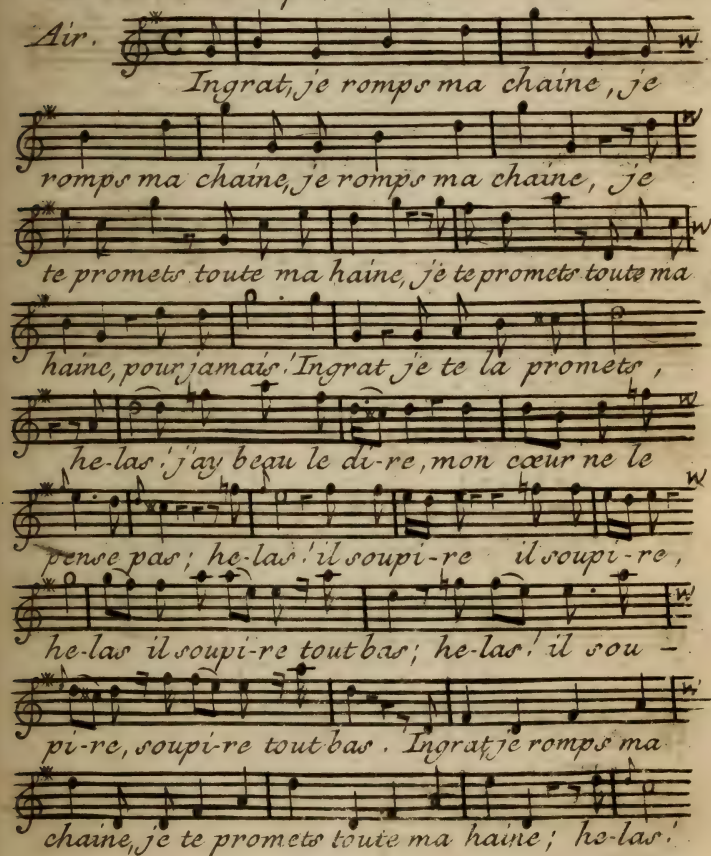 Air.
Ingrat, je romps ma chaine, je
romps ma chaine, je romps ma chaine, je
te promets toute ma haine, je te promets toute ma
haine, pour jamais! Ingrat je te la promets,
he-las! j'ay beau le di-re, mon cœur ne le
pense pas; he-las! il soupi-re il soupi-re,
he-las il soupi-re tout bas; he-las! il sou-
pi-re, soupi-re tout bas. Ingrat, je romps ma
chaine, je te promets toute ma haine; he-las!